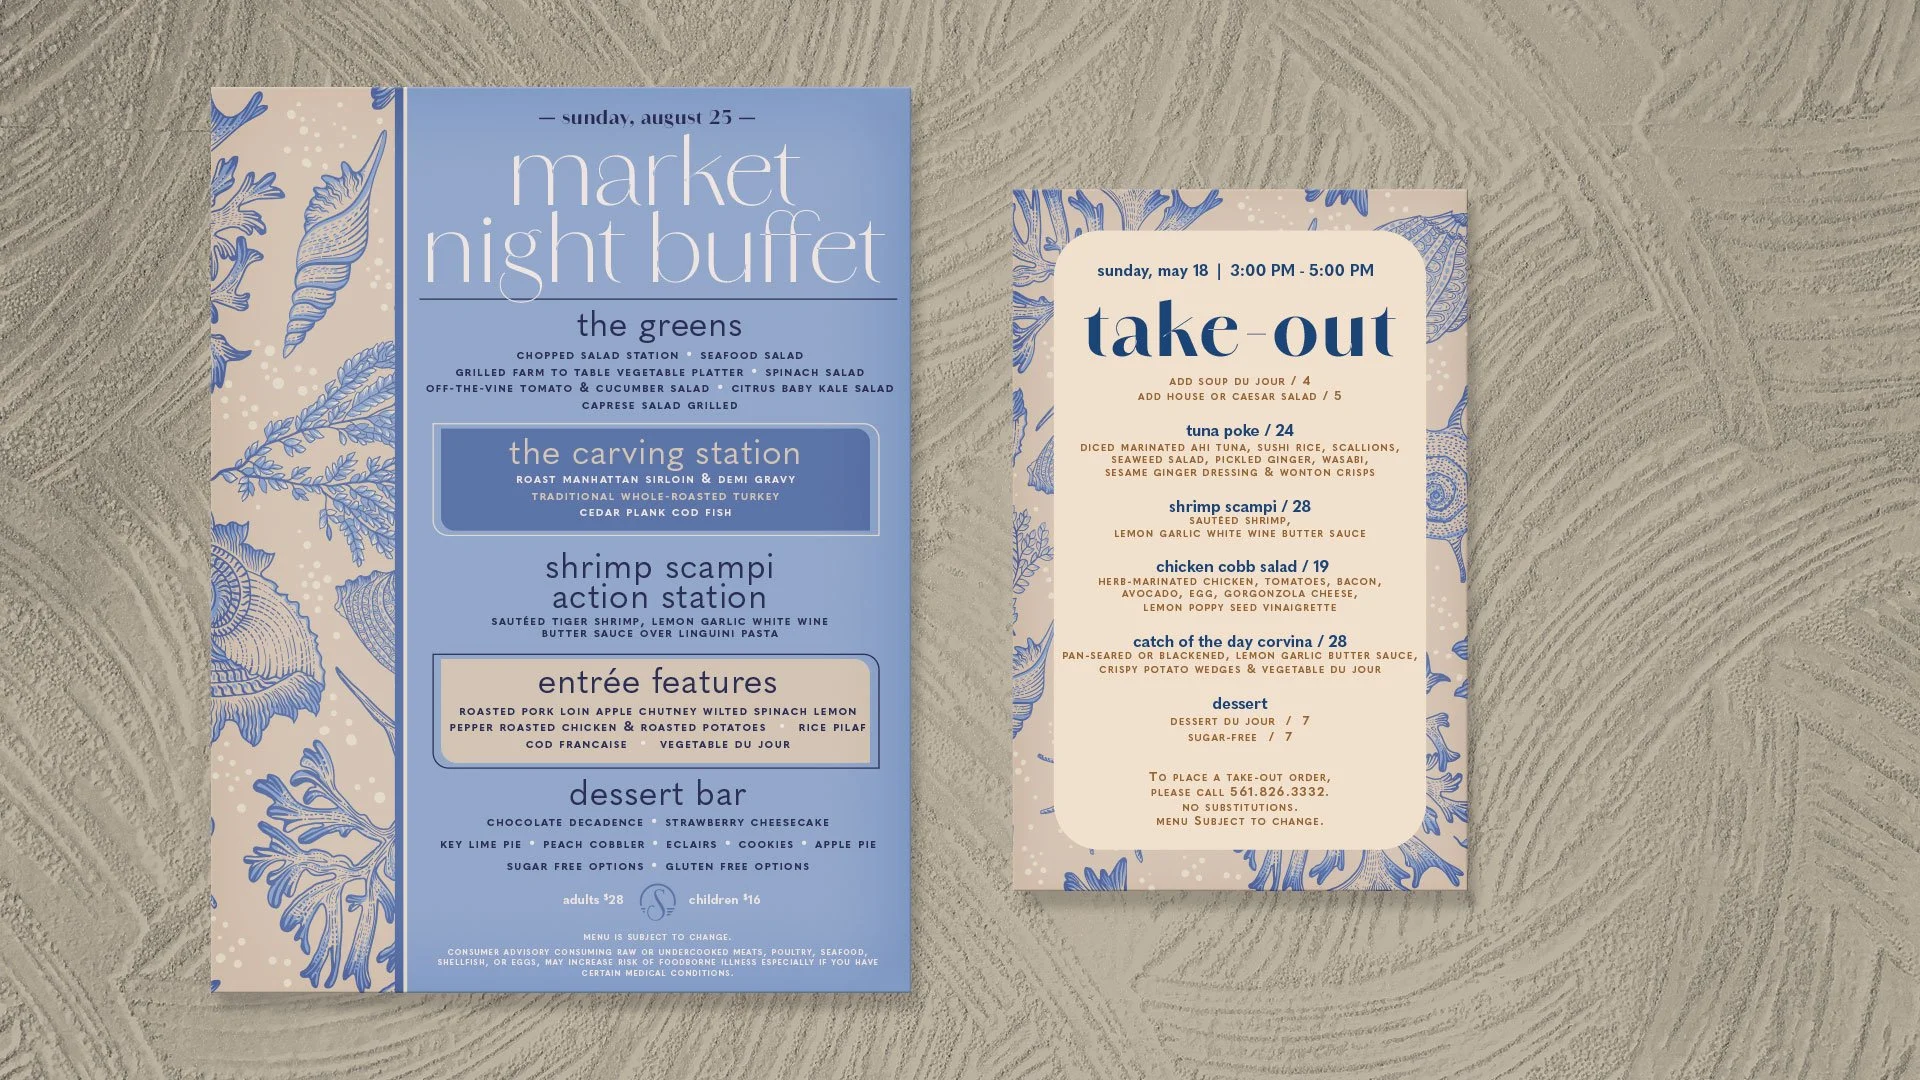 — sunday, august 25 —
market
night buffet
the greens
CHOPPED SALAD STATION • SEAFOOD SALAD
GRILLED FARM TO TABLE VEGETABLE PLATTER • SPINACH SALAD
OFF-THE-VINE TOMATO & CUCUMBER SALAD • CITRUS BABY KALE SALAD
CAPRESE SALAD GRILLED
the carving station
ROAST MANHATTAN SIRLOIN & DEMI GRAVY
TRADITIONAL WHOLE-ROASTED TURKEY
CEDAR PLANK COD FISH
shrimp scampi
action station
SAUTÉED TIGER SHRIMP, LEMON GARLIC WHITE WINE
BUTTER SAUCE OVER LINGUINI PASTA
entrée features
ROASTED PORK LOIN APPLE CHUTNEY WILTED SPINACH LEMON
PEPPER ROASTED CHICKEN & ROASTED POTATOES • RICE PILAF
COD FRANCAISE • VEGETABLE DU JOUR
dessert bar
CHOCOLATE DECADENCE • STRAWBERRY CHEESECAKE
KEY LIME PIE • PEACH COBBLER • ECLAIRS • COOKIES • APPLE PIE
SUGAR FREE OPTIONS • GLUTEN FREE OPTIONS
adults $28 S children $16
MENU IS SUBJECT TO CHANGE.
CONSUMER ADVISORY CONSUMING RAW OR UNDERCOOKED MEATS, POULTRY, SEAFOOD,
SHELLFISH, OR EGGS, MAY INCREASE RISK OF FOODBORNE ILLNESS ESPECIALLY IF YOU HAVE
CERTAIN MEDICAL CONDITIONS.
sunday, may 18 | 3:00 PM - 5:00 PM
take-out
ADD SOUP DU JOUR / 4
ADD HOUSE OR CAESAR SALAD / 5
tuna poke / 24
DICED MARINATED AHI TUNA, SUSHI RICE, SCALLIONS,
SEAWEED SALAD, PICKLED GINGER, WASABI,
SESAME GINGER DRESSING & WONTON CRISPS
shrimp scampi / 28
SAUTÉED SHRIMP,
LEMON GARLIC WHITE WINE BUTTER SAUCE
chicken cobb salad / 19
HERB-MARINATED CHICKEN, TOMATOES, BACON,
AVOCADO, EGG, GORGONZOLA CHEESE,
LEMON POPPY SEED VINAIGRETTE
catch of the day corvina / 28
PAN-SEARED OR BLACKENED, LEMON GARLIC BUTTER SAUCE,
CRISPY POTATO WEDGES & VEGETABLE DU JOUR
dessert
DESSERT DU JOUR / 7
SUGAR-FREE / 7
TO PLACE A TAKE-OUT ORDER,
PLEASE CALL 561.826.3332.
NO SUBSTITUTIONS.
MENU SUBJECT TO CHANGE.